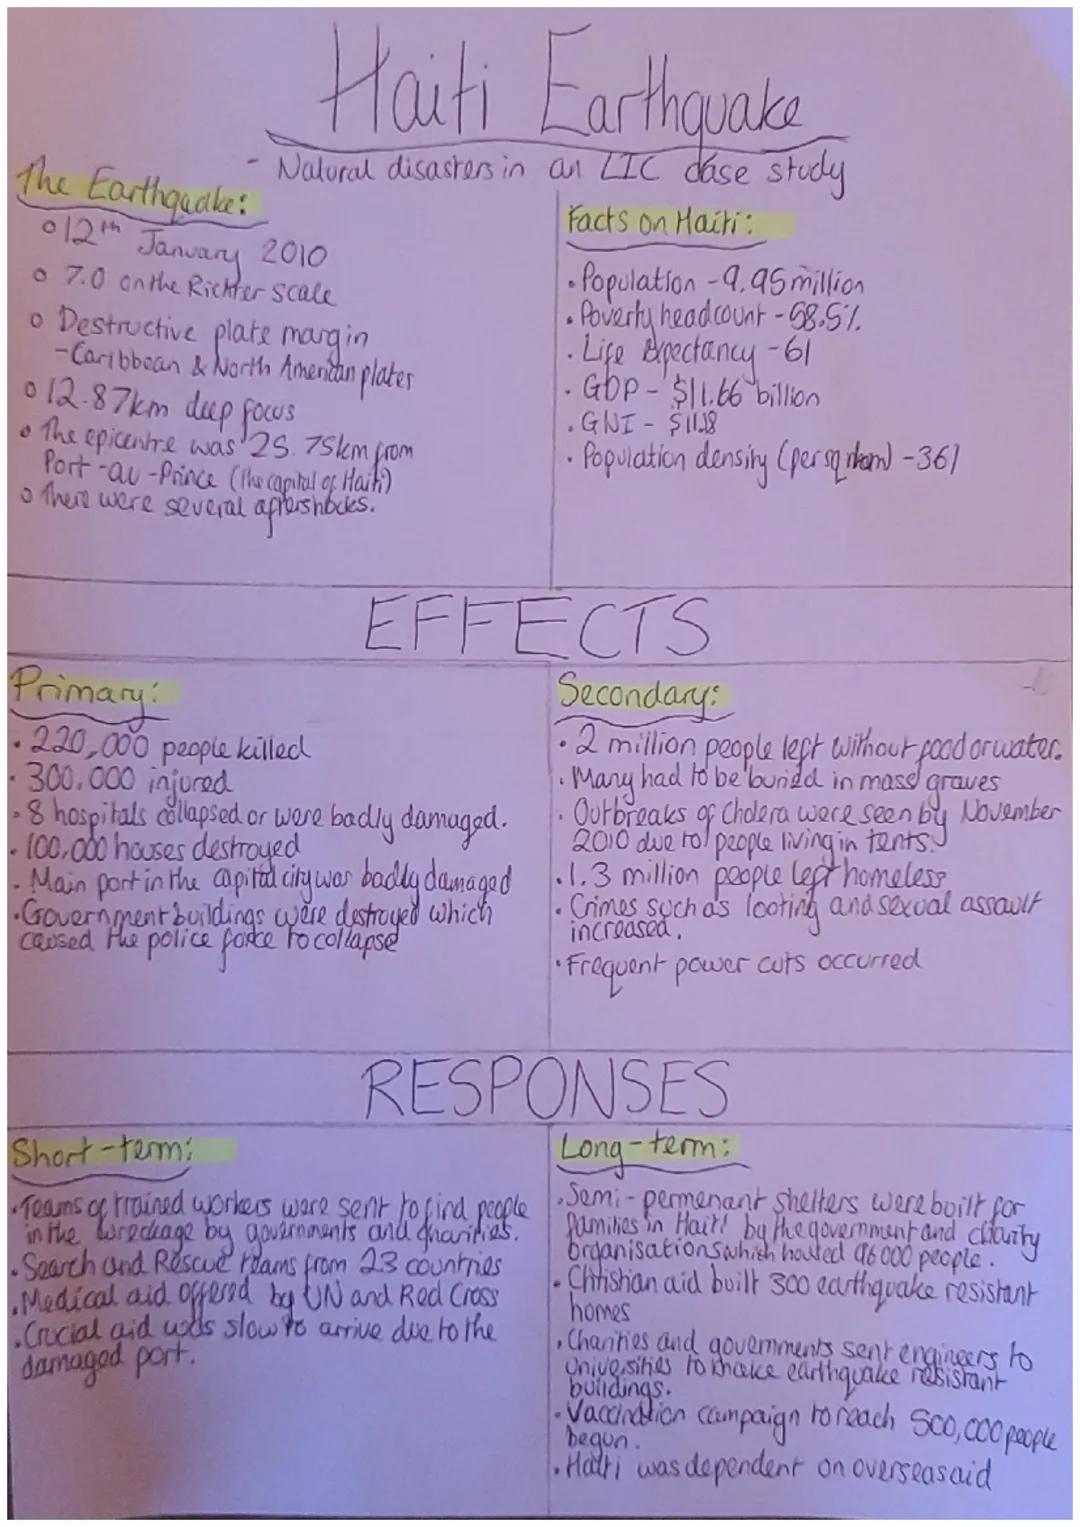 Haiti Earthquake
- Natural disasters in an LIC case study
The Earthquake:
12th January 2010
7.0 on the Richter scale
Destructive plate margin
- Caribbean & North American plates
12.87km deep focus
The epicentre was 25.75km from
Port-au-Prince (the capital of Haiti)
There were several aftershocks.
Facts on Haiti:
• Population - 9.95 million
• Poverty headcount - 58.5%
• Life Expectancy - 61
• GDP - $11.66 billion
• GNI - $11.18
• Population density (per sq km) - 361
EFFECTS
Primary:
• 220,000 people killed
• 300,000 injured
• 8 hospitals collapsed or were badly damaged.
• 100,000 houses destroyed
• Main port in the capital city was badly damaged
• Government buildings were destroyed which
caused the police force to collapse
Secondary:
• 2 million people left without food or water.
• Many had to be buried in mass graves
• Outbreaks of Cholera were seen by November
2010 due to people living in tents.
• 1.3 million people left homeless
• Crimes such as looting and sexual assault
increased.
• Frequent power cuts occurred
RESPONSES
Short-term:
• Teams of trained workers were sent to find people
in the wreckage by governments and charities.
• Search and Rescue teams from 23 countries
• Medical aid offered by UN and Red Cross
• Crucial aid was slow to arrive due to the
damaged port.
Long-term:
• Semi-permenant shelters were built for
families in Haiti by the government and charity
organisations which housed 96 000 people.
• Christian aid built 300 earthquake resistant
homes
• Charities and governments sent engineers to
universities to make earthquake resistant
buildings.
• Vaccination campaign to reach 500,000 people
begun.
• Haiti was dependent on overseas aid